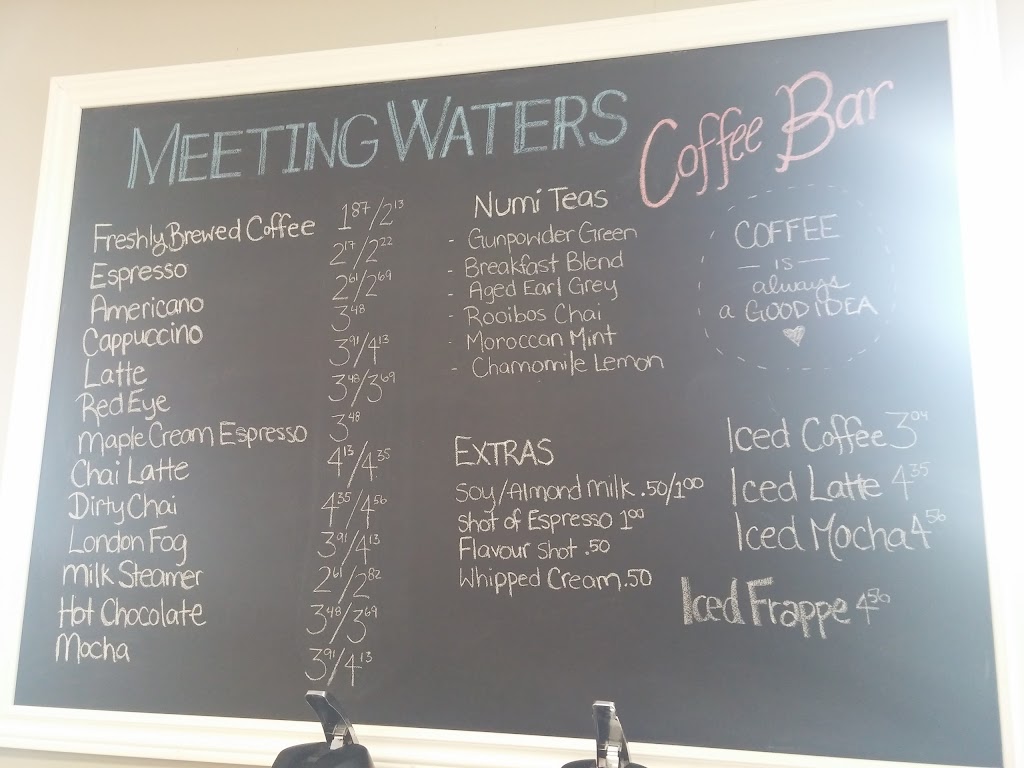 MEETING WATERS Coffee Bar
Freshly Brewed Coffee 1 87/2 13
Espresso 2 17/2 22
Americano 2 61/2 69
Cappuccino 3 48
Latte 3 91/4 13
Red Eye 3 48/3 69
Maple Cream Espresso 3 48
Chai Latte 4 13/4 35
Dirty Chai 4 35/4 56
London Fog 3 91/4 13
Milk Steamer 2 61/2 82
Hot Chocolate 3 48/3 69
Mocha 3 91/4 13
Numi Teas
- Gunpowder Green
- Breakfast Blend
- Aged Earl Grey
- Rooibos Chai
- Moroccan Mint
- Chamomile Lemon
EXTRAS
Soy/Almond Milk .50/1 00
Shot of Espresso 1 00
Flavour Shot .50
Whipped Cream .50
COFFEE
— IS —
always
a GOOD IDEA
Iced Coffee 3 04
Iced Latte 4 35
Iced Mocha 4 56
Iced Frappe 4 56